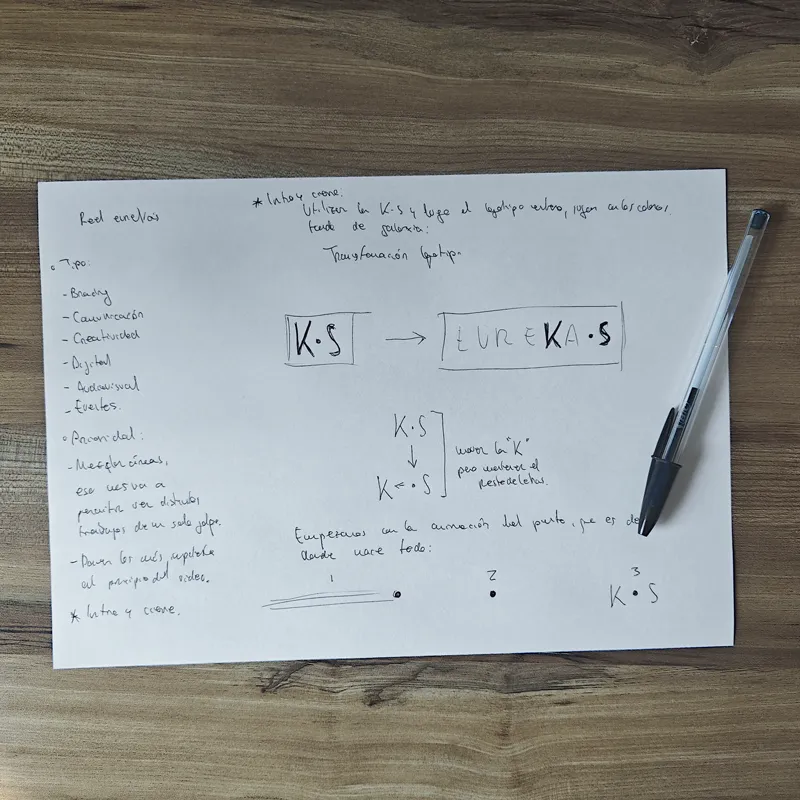 Reel
Tipo:
- Branding
- Comunicación
- Creatividad
- Digital
- Audiovisual
- Eventos.
Prioridad:
- Mezclar áreas,
eso nos va a
permitir ver distintos
trabajos de un solo golpe.
- Poner los más
al principio del video.
* Intro y cierre.
* Intro y cierre:
Utilizar la K·S y luego el logotipo entero, jugar con los colores
fondo de galaxia:
Transformación logotipo.
K·S → EUREKA·S
K·S
↓
K ← · S
mover la "K"
pero mantener el
resto de letras.
Empezamos con la animación del punto, que es de
donde nace todo:
1
2
3
K · S